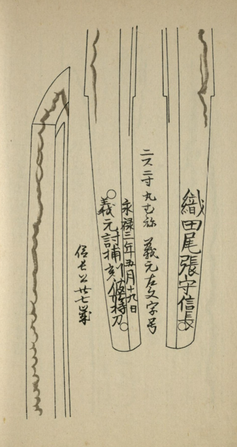 織田尾張守信長
二尺二寸九分 義元左文字号
永禄三年五月十九日
義元討捕刻彼所持刀
信長公廿七歳